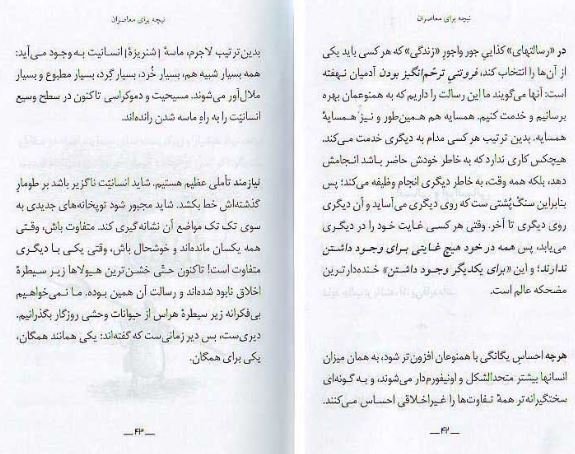 نیچه برای معاصران
در «رسالتهای» کذاییِ جور واجورِ «زندگی» که هر کسی باید یکی
از آن‌ها را انتخاب کند، فروتنیِ ترحّم‌انگیزِ بودنِ آدمیان نهفته
است: آنها می‌گویند ما این رسالت را داریم که به همنوعان بهره
برسانیم و خدمت کنیم. همسایه هم همین‌طور و نیز همسایهٔ
همسایه. بدین ترتیب هر کسی مدام به دیگری خدمت می‌کند.
هیچکس کاری ندارد که به خاطر خودش حاضر باشد انجامش
دهد، بلکه همه وقت، به خاطر دیگری انجام وظیفه می‌کند؛ پس
بنابراین سنگ پُشتی ست که روی دیگری می‌آساید و آن دیگری
روی دیگری تا آخر. وقتی هر کسی غایت خود را در دیگری
می‌یابد، پس همه در خود هیچ غایتی برای وجود داشتن
ندارند؛ و این «برای یکدیگر وجود داشتن» خنده‌دارترین
مضحکه عالم است.
هرچه احساس یگانگی با همنوعان افزون‌تر شود، به همان میزان
انسانها بیشتر متحدالشکل و اونیفورم‌دار می‌شوند، و به گونه‌ای
سختگیرانه‌تر همهٔ تفاوت‌ها را غیراخلاقی احساس می‌کنند.
ـــ ۴۲ ـــ
نیچه برای معاصران
بدین ترتیب لاجرم، ماسهٔ [شنریزهٔ] انسانیت به وجود می‌آید:
همه بسیار شبیه هم، بسیار خُرد، بسیار گِرد، بسیار مطبوع و بسیار
ملال‌آور می‌شوند. مسیحیت و دموکراسی تاکنون در سطح وسیع
انسانیّت را به راهِ ماسه شدن رانده‌اند.
نیازمند تأملی عظیم هستیم. شاید انسانیّت ناگزیر باشد بر طومار
گذشته‌اش خط بکشد. شاید مجبور شود توپخانه‌های جدیدی به
سوی تک تک مواضع آن نشانه‌گیری کند. متفاوت باش، وقتی
همه یکسان مانده‌اند و خوشحال باش، وقتی یکی با دیگری
متفاوت است! تاکنون حتّی خشن‌ترین هیولاها زیر سیطرهٔ
اخلاق نابود شده‌اند و رسالت آن همین بوده. ما نمی‌خواهیم
بی‌فکرانه زیر سیطرهٔ هراس از حیوانات وحشی روزگار بگذرانیم.
دیری‌ست، بس دیر زمانی‌ست که گفته‌اند: یکی همانند همگان،
یکی برای همگان.
ـــ ۴۳ ـــ